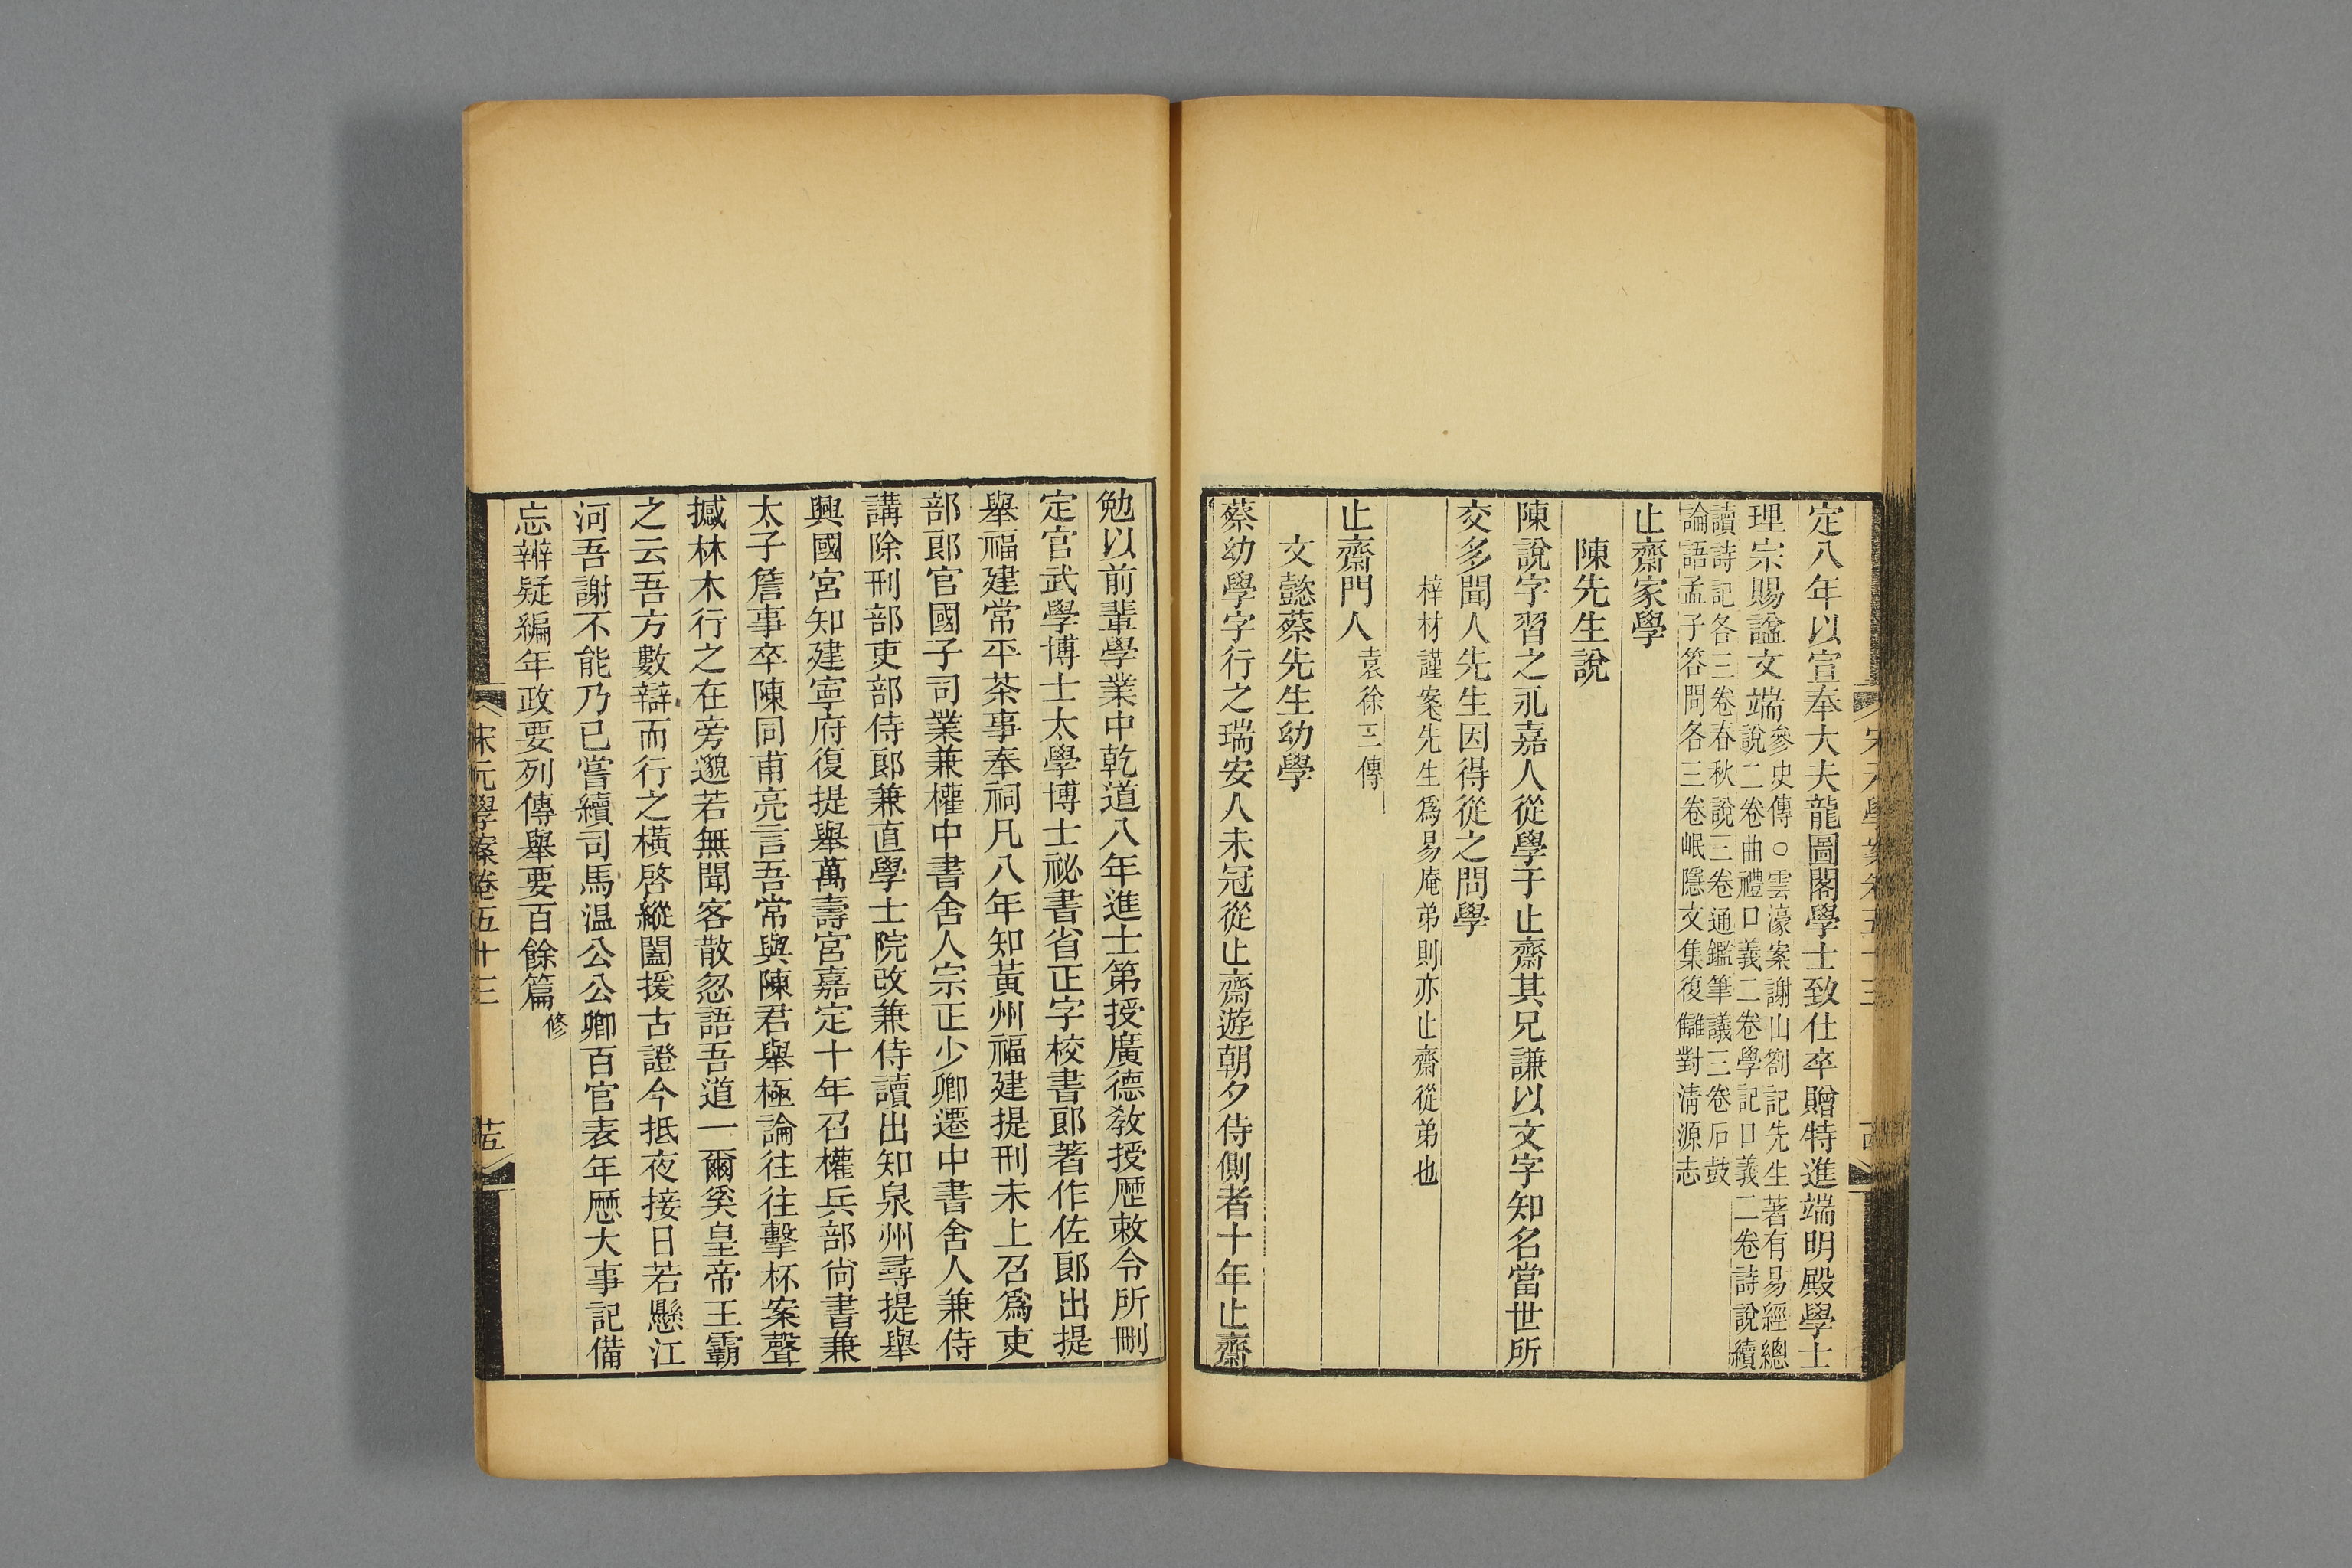 定八年以宣奉大夫龍圖閣學士致仕卒贈特進端明殿學士
理宗賜諡文端參史傳○雲濠案謝山劄記先生著有易經總
說二卷曲禮口義二卷學記口義二卷詩說續
讀詩記各三卷春秋說三卷通鑑筆議三卷石鼓
論語孟子答問各三卷岷隱文集復讎對淸源志
止齋家學
陳先生說
陳說字習之永嘉人從學于止齋其兄謙以文字知名當世所
交多聞人先生因得從之問學
梓材謹案先生爲易庵弟則亦止齋從弟也
止齋門人袁徐三傳
文懿蔡先生幼學
蔡幼學字行之瑞安人未冠從止齋遊朝夕侍側者十年止齋
勉以前輩學業中乾道八年進士第授廣德敎授歷敕令所刪
定官武學博士太學博士祕書省正字校書郎著作佐郎出提
舉福建常平茶事奉祠凡八年知黃州福建提刑未上召爲吏
部郎官國子司業兼權中書舍人宗正少卿遷中書舍人兼侍
講除刑部吏部侍郎兼直學士院改兼侍讀出知泉州尋提舉
興國宮知建寧府復提舉萬壽宮嘉定十年召權兵部尚書兼
太子詹事卒陳同甫亮言吾常與陳君舉極論往往擊杯案聲
撼林木行之在旁邈若無聞客散忽語吾道一爾奚皇帝王霸
之云吾方數辯而行之橫啓縱闔援古證今抵夜接日若懸江
河吾謝不能乃已嘗續司馬温公公卿百官表年歷大事記備
忘辨疑編年政要列傳舉要百餘篇修
宋元學案卷五十三